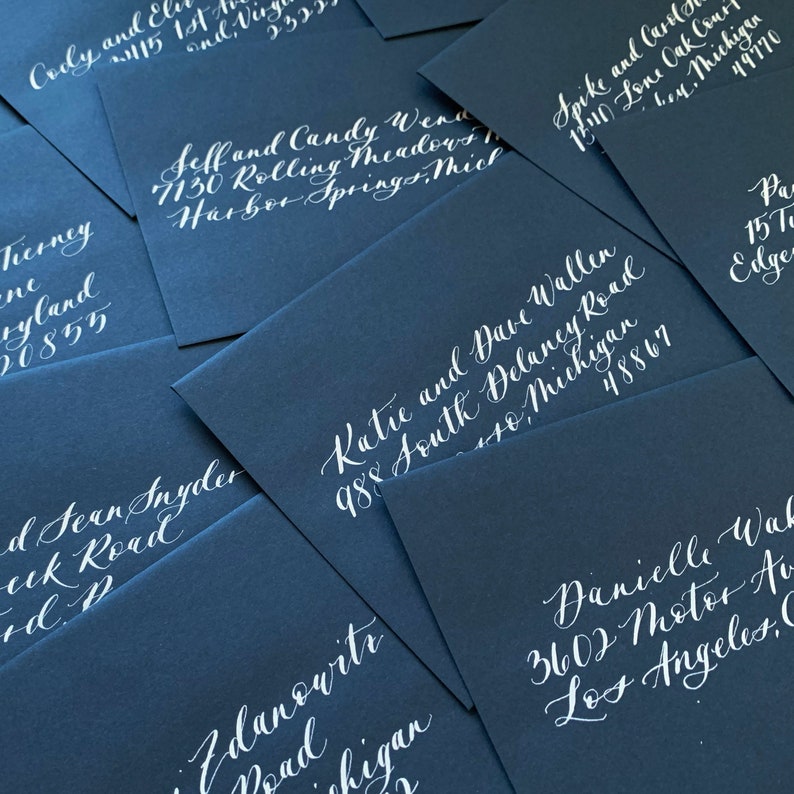 Cody and
1st Ave
Virgin
2322
Spike and Carol
1340 Lone Oak Court
Michigan
49770
Jeff and Candy Wend
7130 Rolling Meadows
Harbor Springs, Mich
15 Tu
Edger
Tierney
ryland
20855
Katie and Dave Wallen
988 South Delaney Road
sso, Michigan
48867
d Sean Snyder
eek Road
rd,
Danielle Wak
3602 Motor Av
Los Angeles, C
Zdanowitz
Road
ichigan